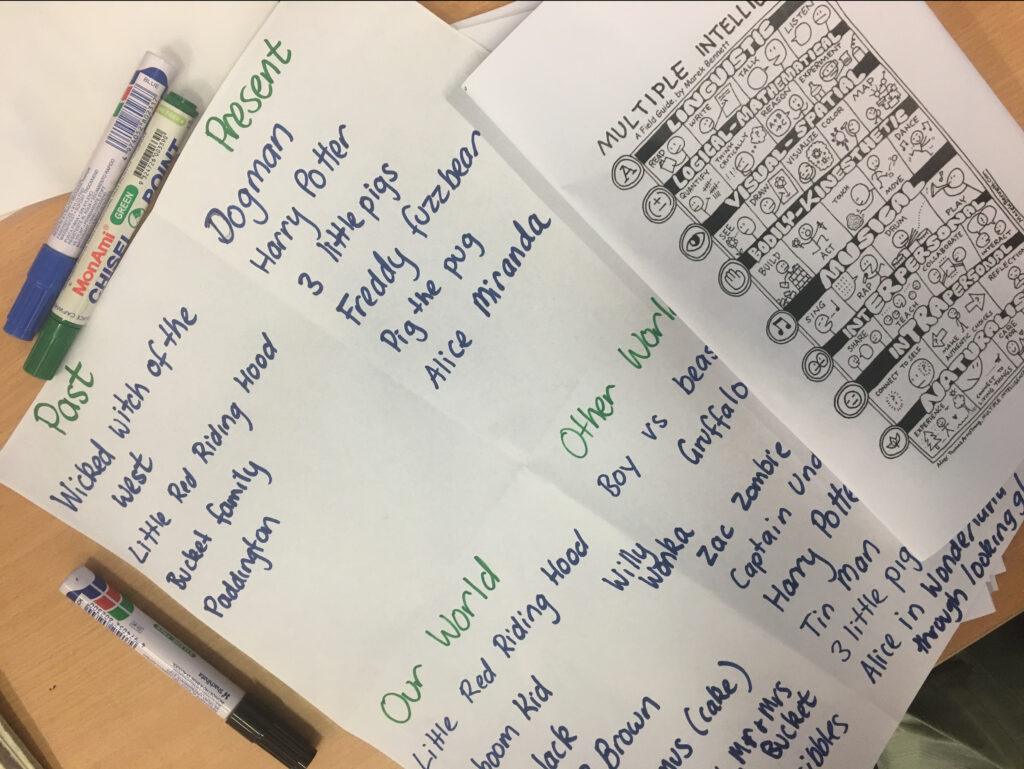 Present
Dogman
Harry Potter
3 little pigs
Freddy fuzzbear
Pig the pug
Alice Miranda
Past
Wicked Witch of the
West
Little Red Riding Hood
Bucket family
Paddington
Other Worl
Boy vs beas
Gruffalo
Willy
Wonka
Zac Zombie
Captain Und
Harry Potte
Tin man
3 little pig
Alice in Wonderland
through looking gl
Our World
Little Red Riding Hood
boom Kid
Jack
Brown
mus (cake)
Mr + Mrs
Bucket
ibbles
MULTIPLE INTELLI
A Field Guide by Marek Bennett
LINGUISTIC
READ
WRITE
TALK
LISTEN
LOGICAL-MATHEMATICAL
QUANTIFY
REASON
EXPERIMENT
VISUAL-SPATIAL
SEE
DRAW
VISUALIZE
COLOR
MAP
BODILY-KINESTHETIC
BUILD
ACT
TOUCH
MOVE
DANCE
MUSICAL
SING
RAP
DRUM
PLAY
INTERPERSONAL
SHARE
COLLABORATE
INTRAPERSONAL
CONNECT TO SELF
REFLECT
NATURALIS
EXPERIENCE
CARE
BLUE
MonAmi
GREEN
CHISEL POINT